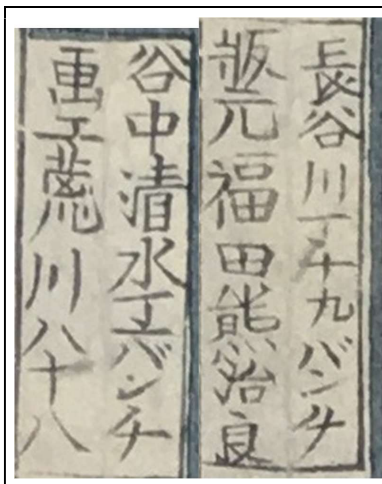 長谷川丁十九バンチ
版元福田熊治良
谷中清水丁一バンチ
画工荒川八十八